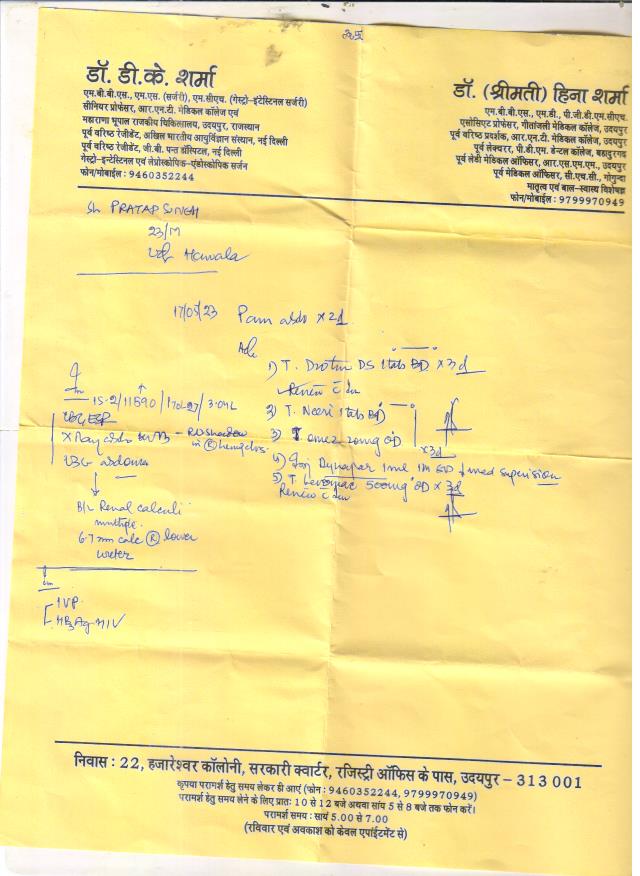 डॉ. डी.के. शर्मा
एम.बी.बी.एस., एम.एस. (सर्जरी), एम.सीएच. (गेस्ट्रो-इंटेस्टिनल सर्जरी)
सीनियर प्रोफेसर, आर.एन.टी. मेडिकल कॉलेज एवं
महाराणा भूपाल राजकीय चिकित्सालय, उदयपुर, राजस्थान
पूर्व वरिष्ठ रेजीडेंट, अखिल भारतीय आयुर्विज्ञान संस्थान, नई दिल्ली
पूर्व वरिष्ठ रेजीडेंट, जी.बी. पन्त हॉस्पिटल, नई दिल्ली
गेस्ट्रो-इन्टेस्टिनल एवं लेप्रोस्कोपिक-एंडोस्कोपिक सर्जन
फोन/मोबाईल : 9460352244
डॉ. (श्रीमती) हिना शर्मा
एम.बी.बी.एस., एम.डी., पी.जी.डी.एम.सीएच.
एसोसिएट प्रोफेसर, गीतांजली मेडिकल कॉलेज, उदयपुर
पूर्व वरिष्ठ प्रदर्शक, आर.एन.टी. मेडिकल कॉलेज, उदयपुर
पूर्व लेक्चरर, पी.डी.एम. डेन्टल कॉलेज, बहादुरगढ़
पूर्व लेडी मेडिकल ऑफिसर, आर.एस.एम.एम., उदयपुर
पूर्व मेडिकल ऑफिसर, सी.एच.सी., गोगुन्दा
मातृत्व एवं बाल-स्वास्थ्य विशेषज्ञ
फोन/मोबाईल : 9799970949
Sh PRATAP SINGH
23/M
Hawala
17/05/23 Pain abdo x 2d
Adv
1) T. Drotin DS 1 tab BD x 3d
Review
15.2/11890/
2) T. Neeri 1 tab BD
X Ray abdo - RO shadow
in R
3) T omez 20mg OD
x 3d
4) Inj Dynapar 1ml IM supervision
USG abdomen
5) T 500mg OD x 3d
Review
B/L Renal calculi
multiple.
6.7 mm calc R lower
ureter
IVP
HBsAg HIV
निवास : 22, हजारेश्वर कॉलोनी, सरकारी क्वार्टर, रजिस्ट्री ऑफिस के पास, उदयपुर - 313 001
कृपया परामर्श हेतु समय लेकर ही आएं (फोन : 9460352244, 9799970949)
परामर्श हेतु समय लेने के लिए प्रातः 10 से 12 बजे अथवा सांय 5 से 8 बजे तक फोन करें।
परामर्श समय : सायं 5.00 से 7.00
(रविवार एवं अवकाश को केवल एपाईंटमेंट से)